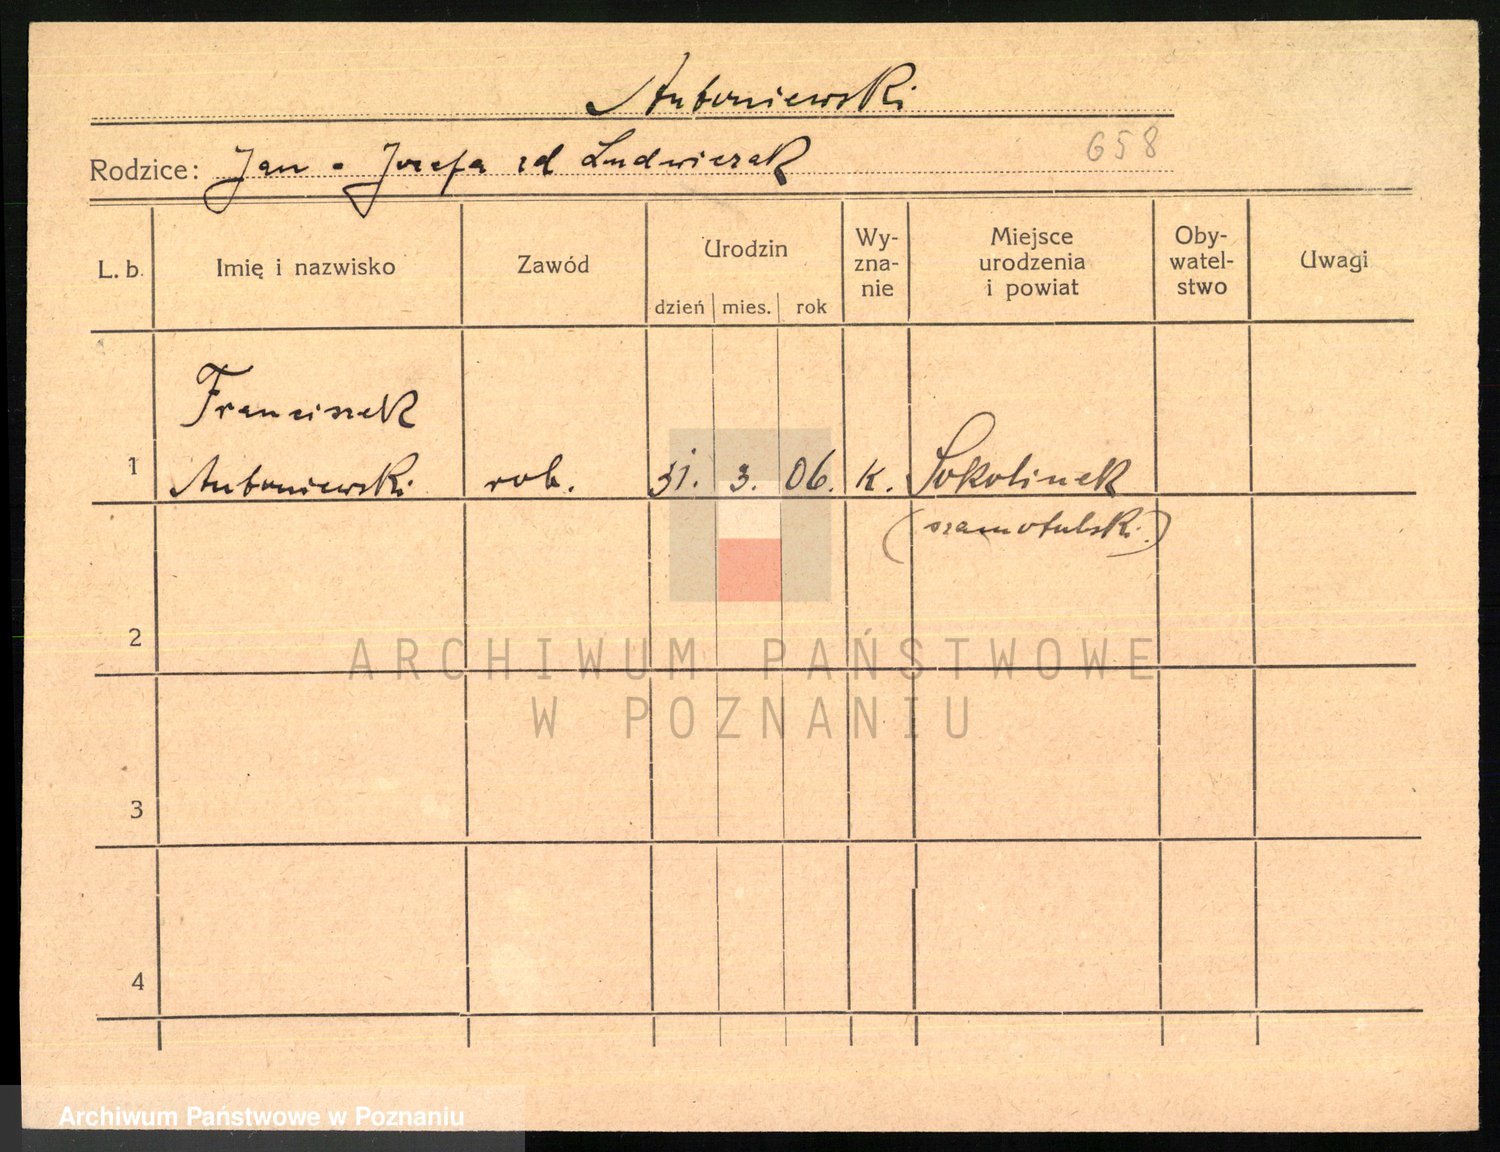 Antoniewski
658
Rodzice: Jan - Jozefa zd Ludwiczak
L. b. Imię i nazwisko Zawód Urodzin dzień mies. rok Wy-zna-nie Miejsce urodzenia i powiat Oby-watel-stwo Uwagi
Franciszek
1 Antoniewski rob. 31. 3. 06. k. Sokolinek
(szamotulski.)
2
ARCHIWUM PAŃSTWOWE
W POZNANIU
3
4
Archiwum Państwowe w Poznaniu